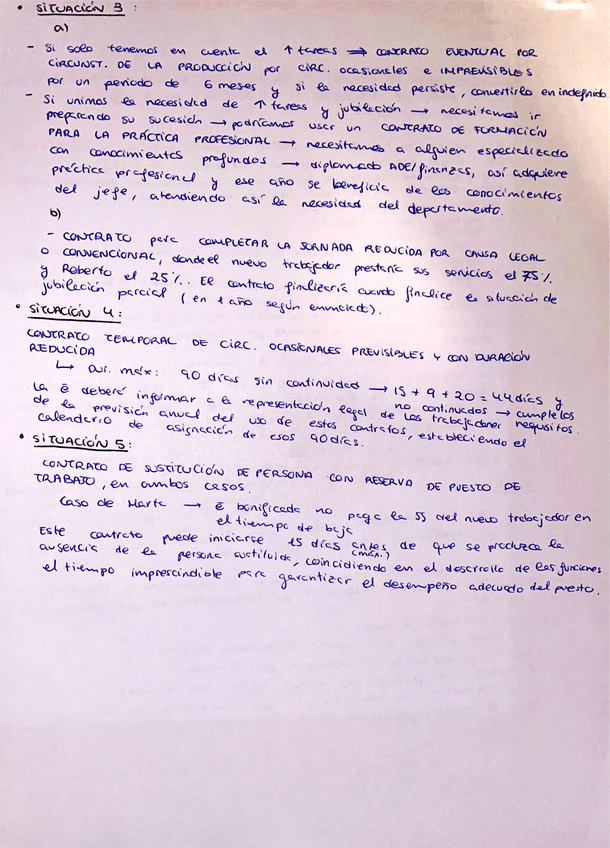 • SITUACIÓN 3 :
a)
- Si solo tenemos en cuenta el ↑ tareas ⇒ CONTRATO EVENTUAL POR
CIRCUNST. DE LA PRODUCCIÓN por CIRC. ocasionales e IMPREVISIBLES
por un periodo de 6 meses y si la necesidad persiste, convertirlo en indefinido.
- Si unimos la necesidad de ↑ tareas y jubilación → necesitamos ir
preparando su sucesión → podríamos usar un CONTRATO DE FORMACIÓN
PARA LA PRÁCTICA PROFESIONAL → necesitamos a alguien especializado
con conocimientos profundos → diplomado ADE/finanzas, así adquiere
práctica profesional y ese año se beneficia de los conocimientos
del jefe, atendiendo así la necesidad del departamento.
b)
- CONTRATO para COMPLETAR LA JORNADA REDUCIDA POR CAUSA LEGAL
O CONVENCIONAL, donde el nuevo trabajador prestaría sus servicios el 75%
y Roberto el 25%. El contrato finalizaría cuando finalice la situación de
jubilación parcial (en 1 año según enunciado).
• SITUACIÓN 4 :
CONTRATO TEMPORAL DE CIRC. OCASIONALES PREVISIBLES Y CON DURACIÓN
REDUCIDA
↳ Dur. máx: 90 días sin continuidad → 15 + 9 + 20 = 44 días y
no continuados → cumple los
requisitos.
La E deberá informar a la representación legal de los trabajadores
de la previsión anual del uso de estos contratos, estableciendo el
calendario de asignación de esos 90 días.
• SITUACIÓN 5 :
CONTRATO DE SUSTITUCIÓN DE PERSONA CON RESERVA DE PUESTO DE
TRABAJO, en ambos casos.
Caso de Marta → E bonificada no paga la SS del nuevo trabajador en
el tiempo de baja
Este contrato puede iniciarse 15 días antes de que se produzca la
(máx.)
ausencia de la persona sustituida, coincidiendo en el desarrollo de las funciones
el tiempo imprescindible para garantizar el desempeño adecuado del puesto.